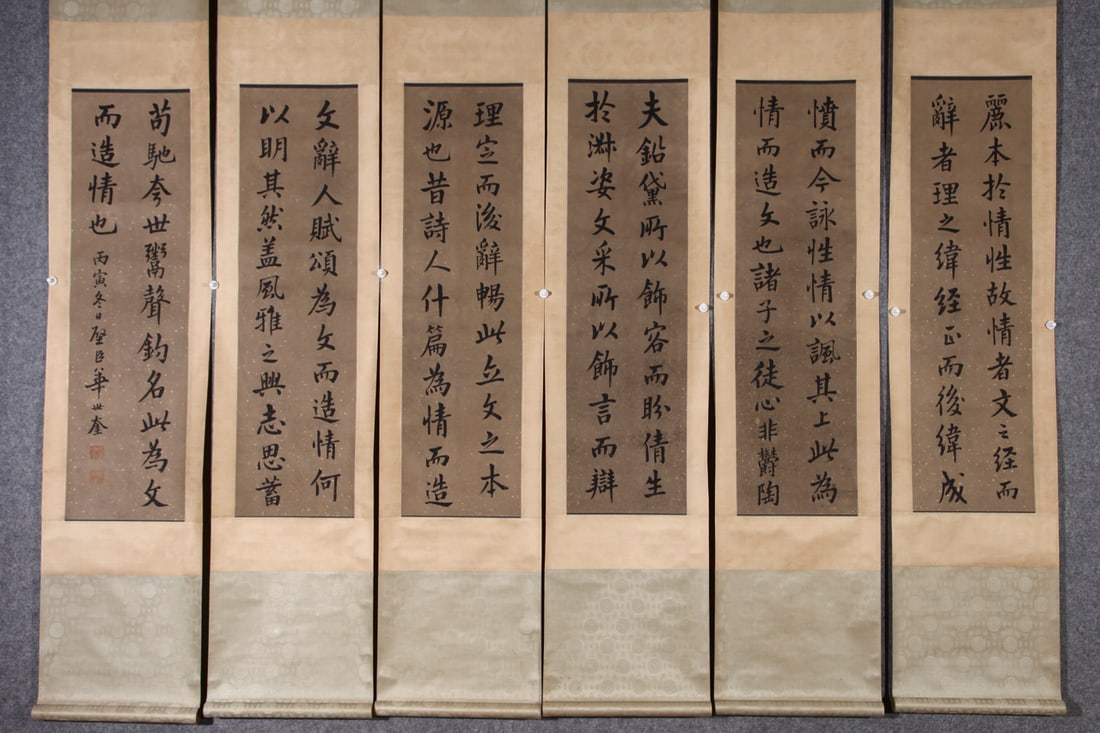 麗本於情性故情者文之經而
辭者理之緯經正而後緯成
憤而今詠性情以諷其上此為
情而造文也諸子之徒心非鬱陶
夫鉛黛所以飾容而盼倩生
於淑姿文采所以飾言而辯
理定而後辭暢此立文之本
源也昔詩人什篇為情而造
文辭人賦頌為文而造情何
以明其然盖風雅之興志思蓄
苟馳夸世鬻聲鈞名此為文
而造情也 丙寅冬日璧臣華世奎